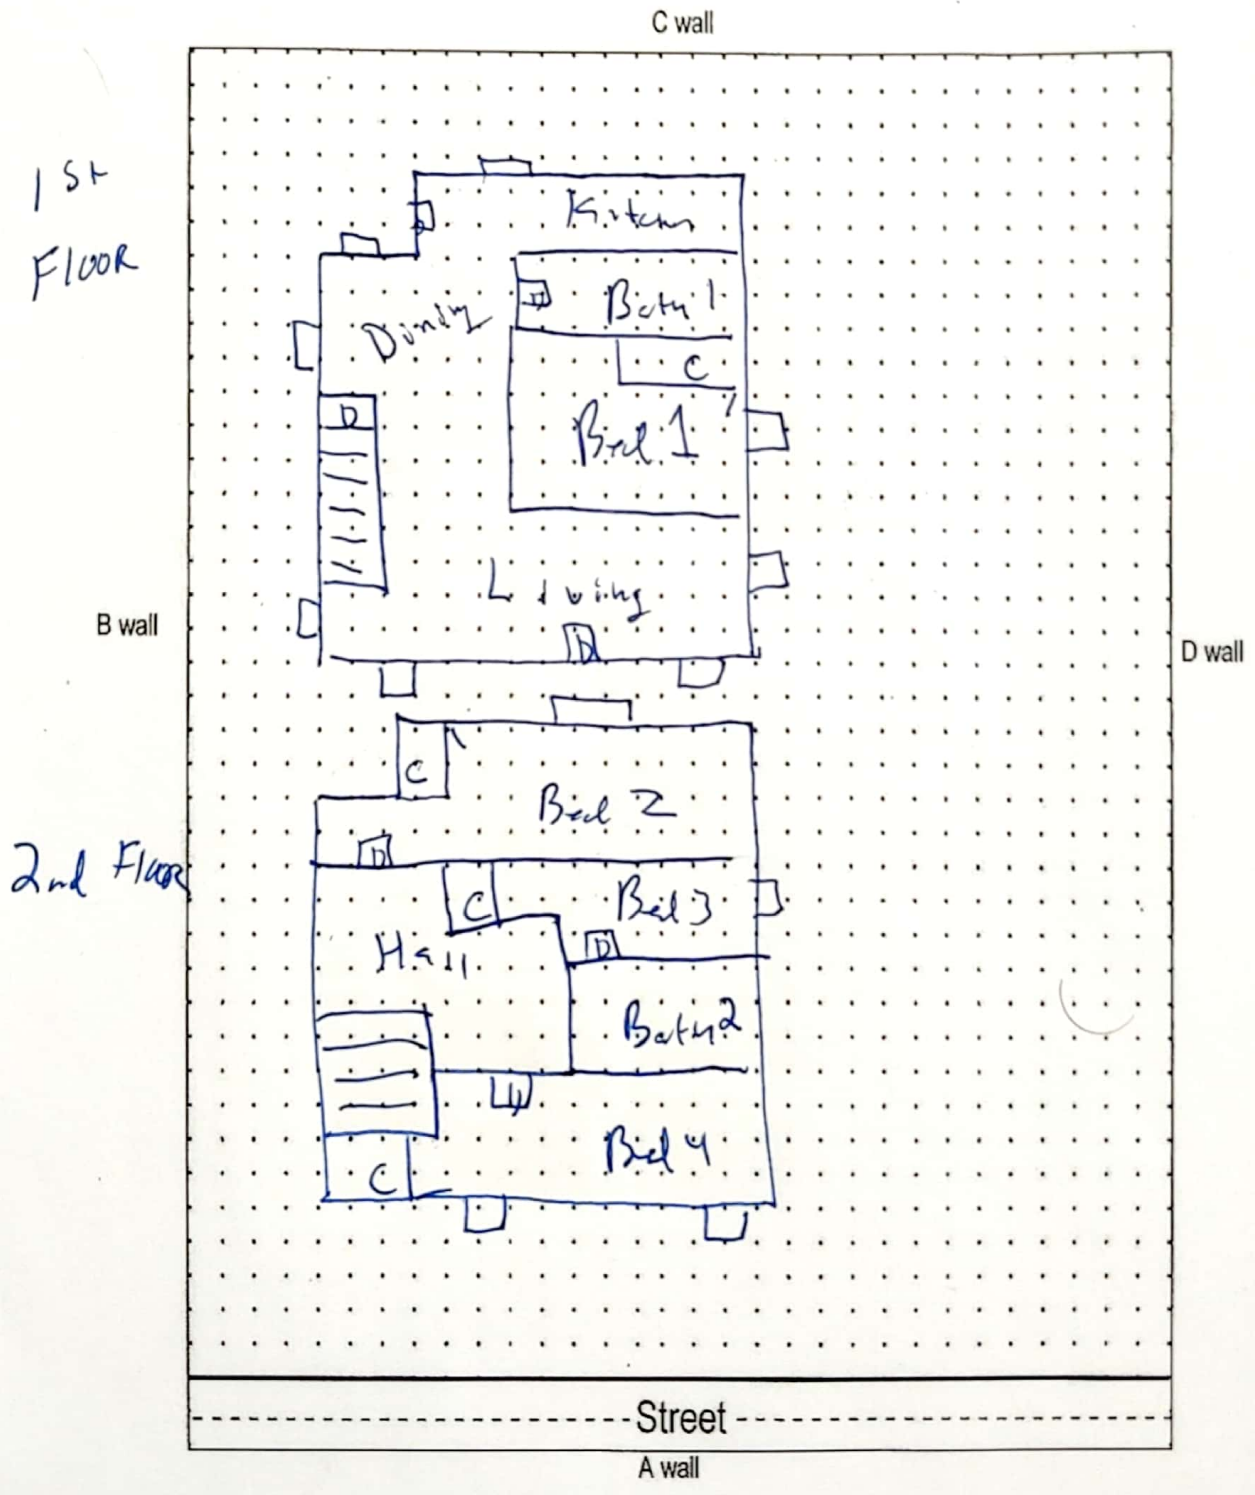 C wall
1st
FLOOR
Kitchen
Bath 1
D
Dining
C
D
Bed 1
Living
B wall
D wall
D
C
Bed 2
D
2nd Floor
C
Bed 3
Hall
D
Bath 2
D
Bed 4
C
Street
A wall